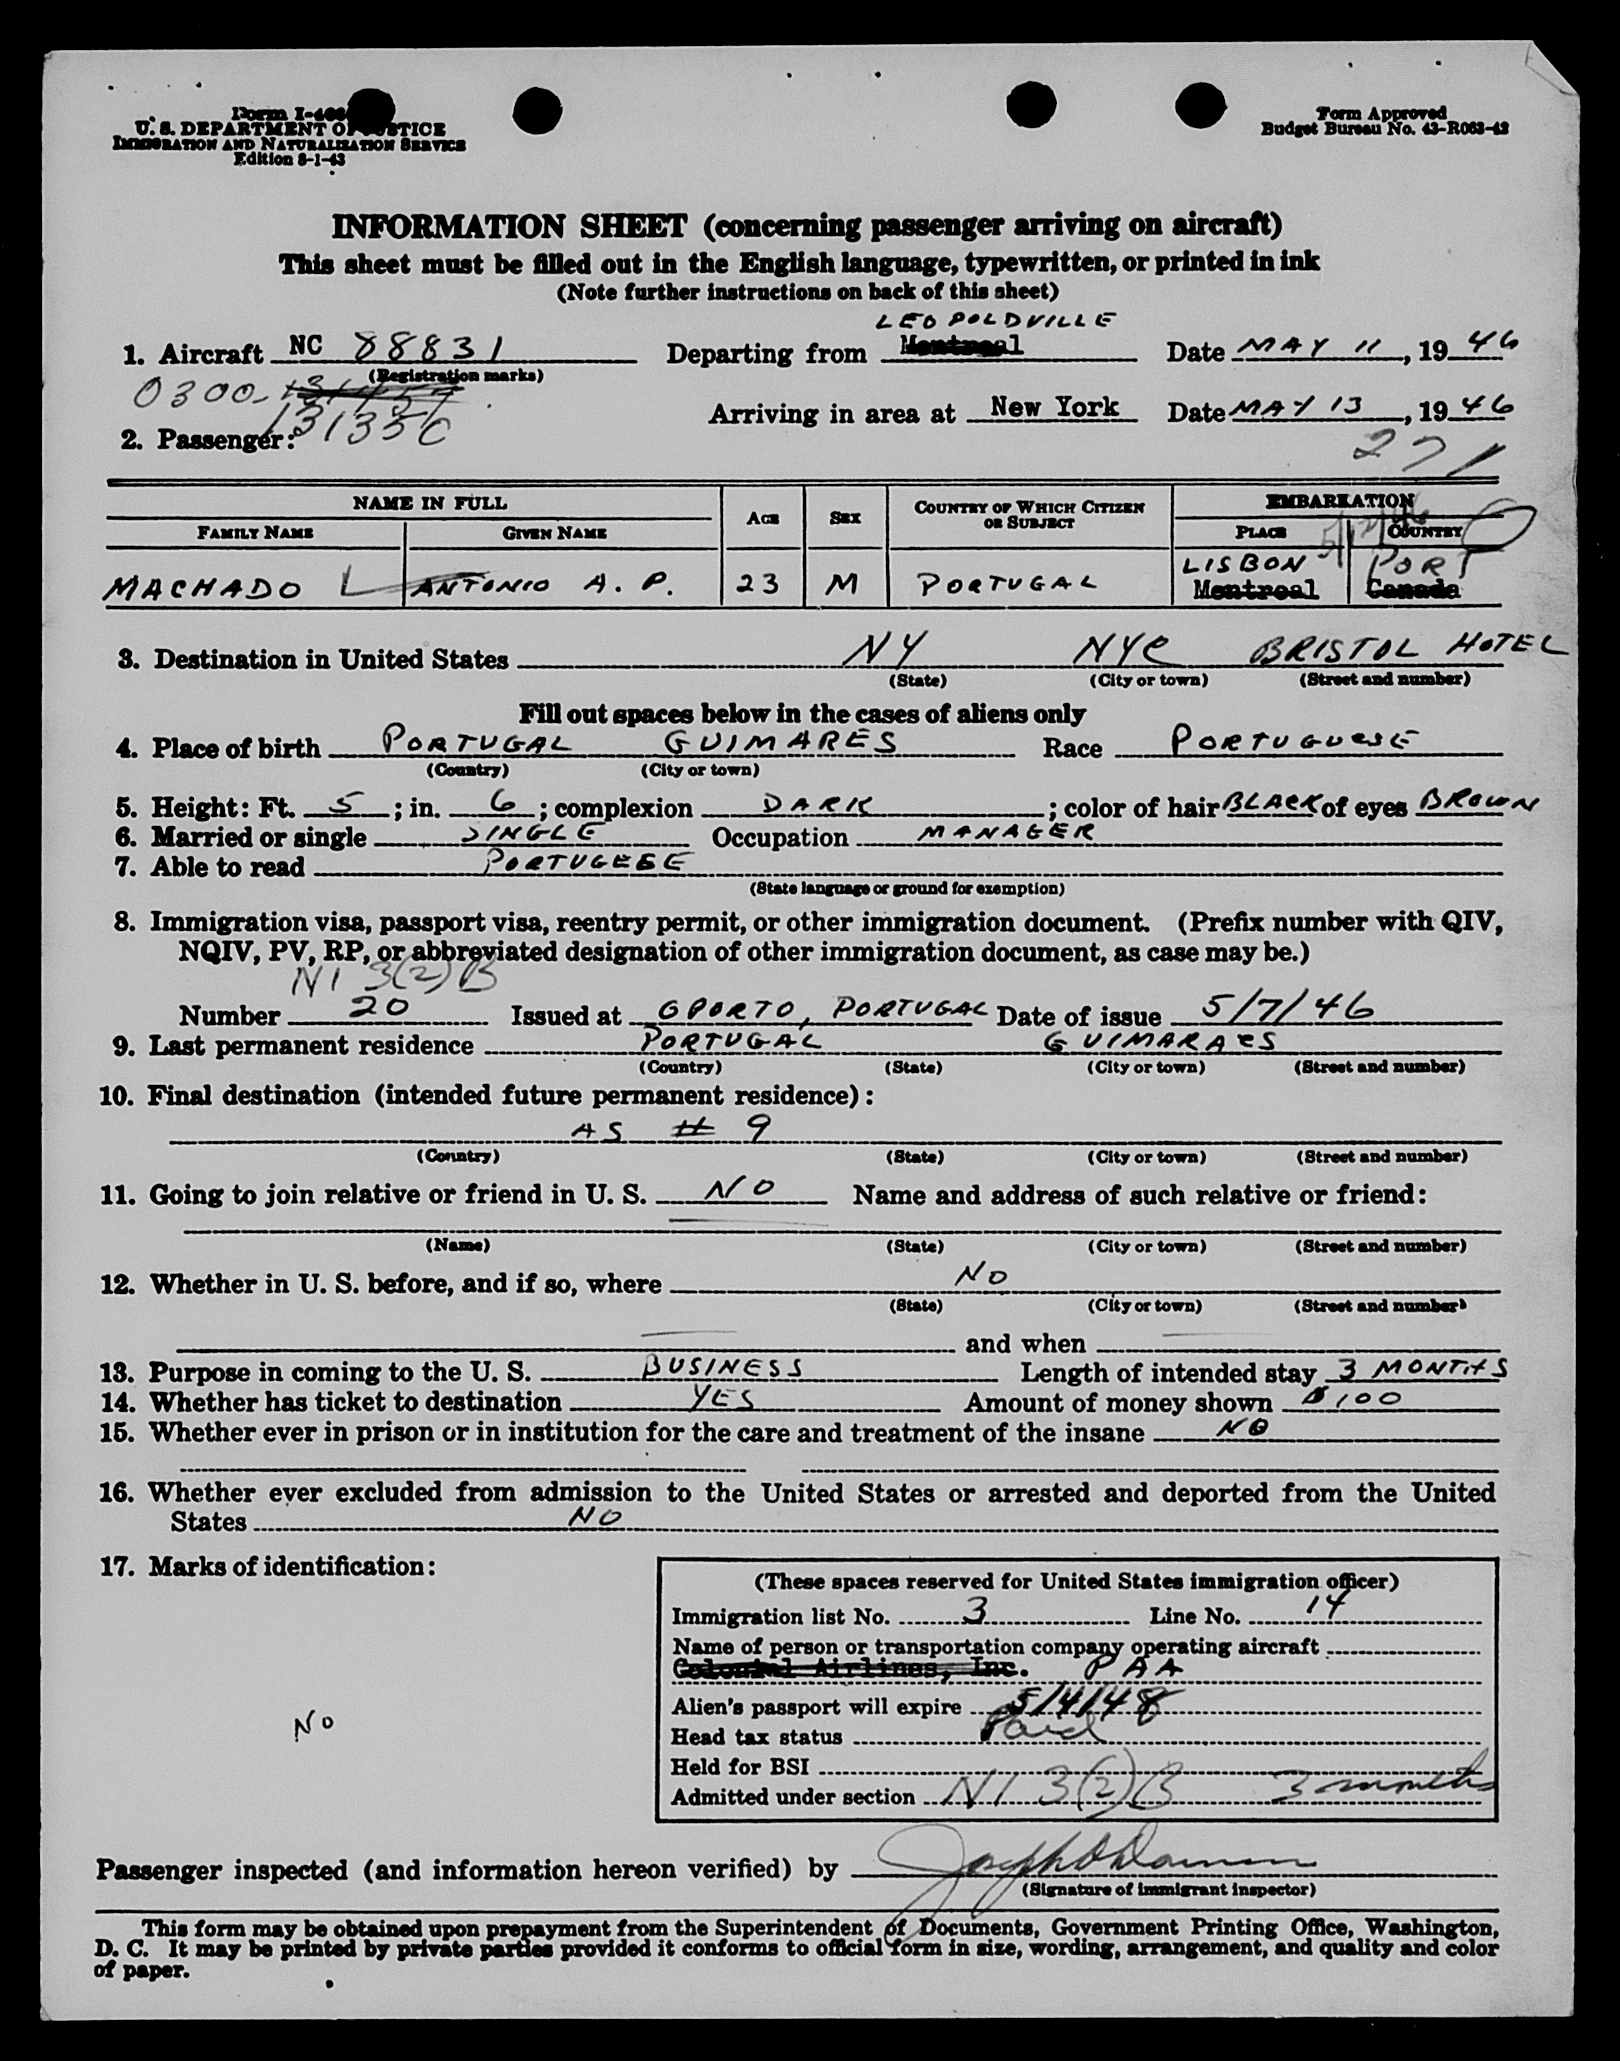 Form I-466
U. S. DEPARTMENT OF JUSTICE
IMMIGRATION AND NATURALIZATION SERVICE
Edition 8-1-43
Form Approved
Budget Bureau No. 43-R063-42
INFORMATION SHEET (concerning passenger arriving on aircraft)
This sheet must be filled out in the English language, typewritten, or printed in ink
(Note further instructions on back of this sheet)
LEOPOLDVILLE
1. Aircraft NC 88831 Departing from Montreal Date MAY 11, 1946
(Registration marks)
0300-
131356
Arriving in area at New York Date MAY 13, 1946
2. Passenger:
271
NAME IN FULL AGE SEX COUNTRY OF WHICH CITIZEN OR SUBJECT EMBARKATION
FAMILY NAME GIVEN NAME PLACE COUNTRY
LISBON PORT
MACHADO ANTONIO A. P. 23 M PORTUGAL Montreal Canada
3. Destination in United States NY NYC BRISTOL HOTEL
(State) (City or town) (Street and number)
Fill out spaces below in the cases of aliens only
4. Place of birth PORTUGAL GUIMARES Race PORTUGUESE
(Country) (City or town)
5. Height: Ft. 5; in. 6; complexion DARK; color of hair BLACK of eyes BROWN
6. Married or single SINGLE Occupation MANAGER
7. Able to read PORTUGESE
(State language or ground for exemption)
8. Immigration visa, passport visa, reentry permit, or other immigration document. (Prefix number with QIV,
NQIV, PV, RP, or abbreviated designation of other immigration document, as case may be.)
NI 3(2)B
Number 20 Issued at OPORTO, PORTUGAL Date of issue 5/7/46
9. Last permanent residence PORTUGAL GUIMARAES
(Country) (State) (City or town) (Street and number)
10. Final destination (intended future permanent residence):
AS # 9
(Country) (State) (City or town) (Street and number)
11. Going to join relative or friend in U. S. NO Name and address of such relative or friend:
(Name) (State) (City or town) (Street and number)
12. Whether in U. S. before, and if so, where NO
(State) (City or town) (Street and number)
and when
13. Purpose in coming to the U. S. BUSINESS Length of intended stay 3 MONTHS
14. Whether has ticket to destination YES Amount of money shown $100
15. Whether ever in prison or in institution for the care and treatment of the insane NO
16. Whether ever excluded from admission to the United States or arrested and deported from the United
States NO
17. Marks of identification:
NO
(These spaces reserved for United States immigration officer)
Immigration list No. 3 Line No. 14
Name of person or transportation company operating aircraft
Colonial Airlines, Inc. PAA
Alien's passport will expire 5/4/48
Head tax status Paid
Held for BSI
Admitted under section NI 3(2)B 3 months
Passenger inspected (and information hereon verified) by
(Signature of immigrant inspector)
This form may be obtained upon prepayment from the Superintendent of Documents, Government Printing Office, Washington,
D. C. It may be printed by private parties provided it conforms to official form in size, wording, arrangement, and quality and color
of paper.